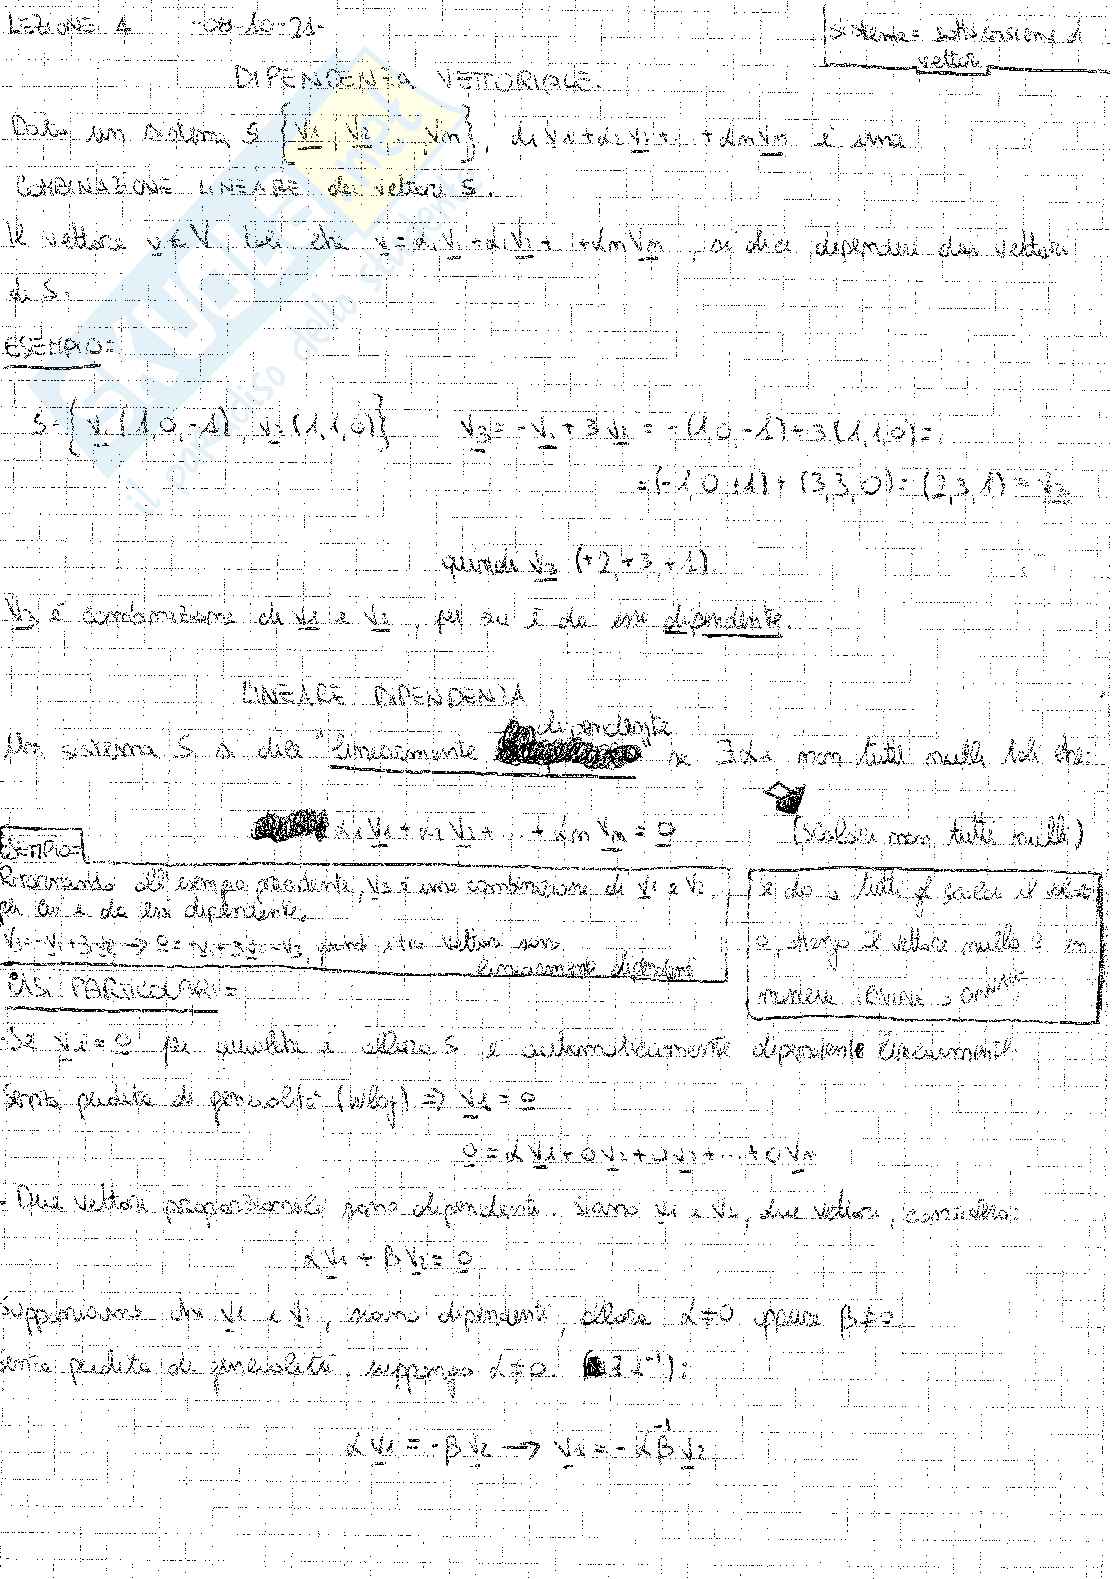 LEZIONE 4 -08-10-21-
sistema = successione di
vettori
DIPENDENZA VETTORIALE.
Dato un sistema S {v1, v2, .., vm}, α1v1+α2v2+.. +αmvm è una
COMBINAZIONE LINEARE dei vettori S.
Il vettore v ∈ V, tale che v=α1v1+α2v2+ +αmvm, si dice dipendere dai vettori
di S.
ESEMPIO:
S={v1(1,0,-1), v2(1,1,0)} v3=-v1+3v2=-(1,0-1)+3(1,1,0)=
=(-1,0+1)+(3,3,0)=(2,3,1)=v3
quindi v3 (+2,+3,+1)
v3 è combinazione di v1 e v2, per cui è da essi dipendente.
LINEARE DIPENDENZA
Un sistema S si dice "linearmente dipendente se ∃αi non tutti nulli tali che:
α1v1+α2v2+...+αmvm=0 (scalari non tutti nulli)
ESEMPIO:
Ritornando all'esempio precedente, v3 è una combinazione di v1 e v2,
per cui è da essi dipendente.
v3=-v1+3v2 → 0=-v1+3v2-v3, quindi i tre vettori sono
linearmente dipendenti
se do a tutti gli scalari il valore
0, tengo il vettore nullo è in
maniera
CASI PARTICOLARI:
-Se vi=0 per qualche i allora S è automaticamente dipendente linearmente.
Senza perdita di generalità (wlog) => v1=0
0=αv1+0v2+0v3+...+0vn
- Due vettori proporzionali sono dipendenti. Siano v1 e v2, due vettori, considero:
αv1+βv2=0
Supponiamo che v1 e v2, siano dipendenti, allora α≠0 oppure β≠0
senza perdita di generalità, suppongo α≠0 (∃α⁻¹):
αv1=-βv2 → v1=-α⁻¹βv2